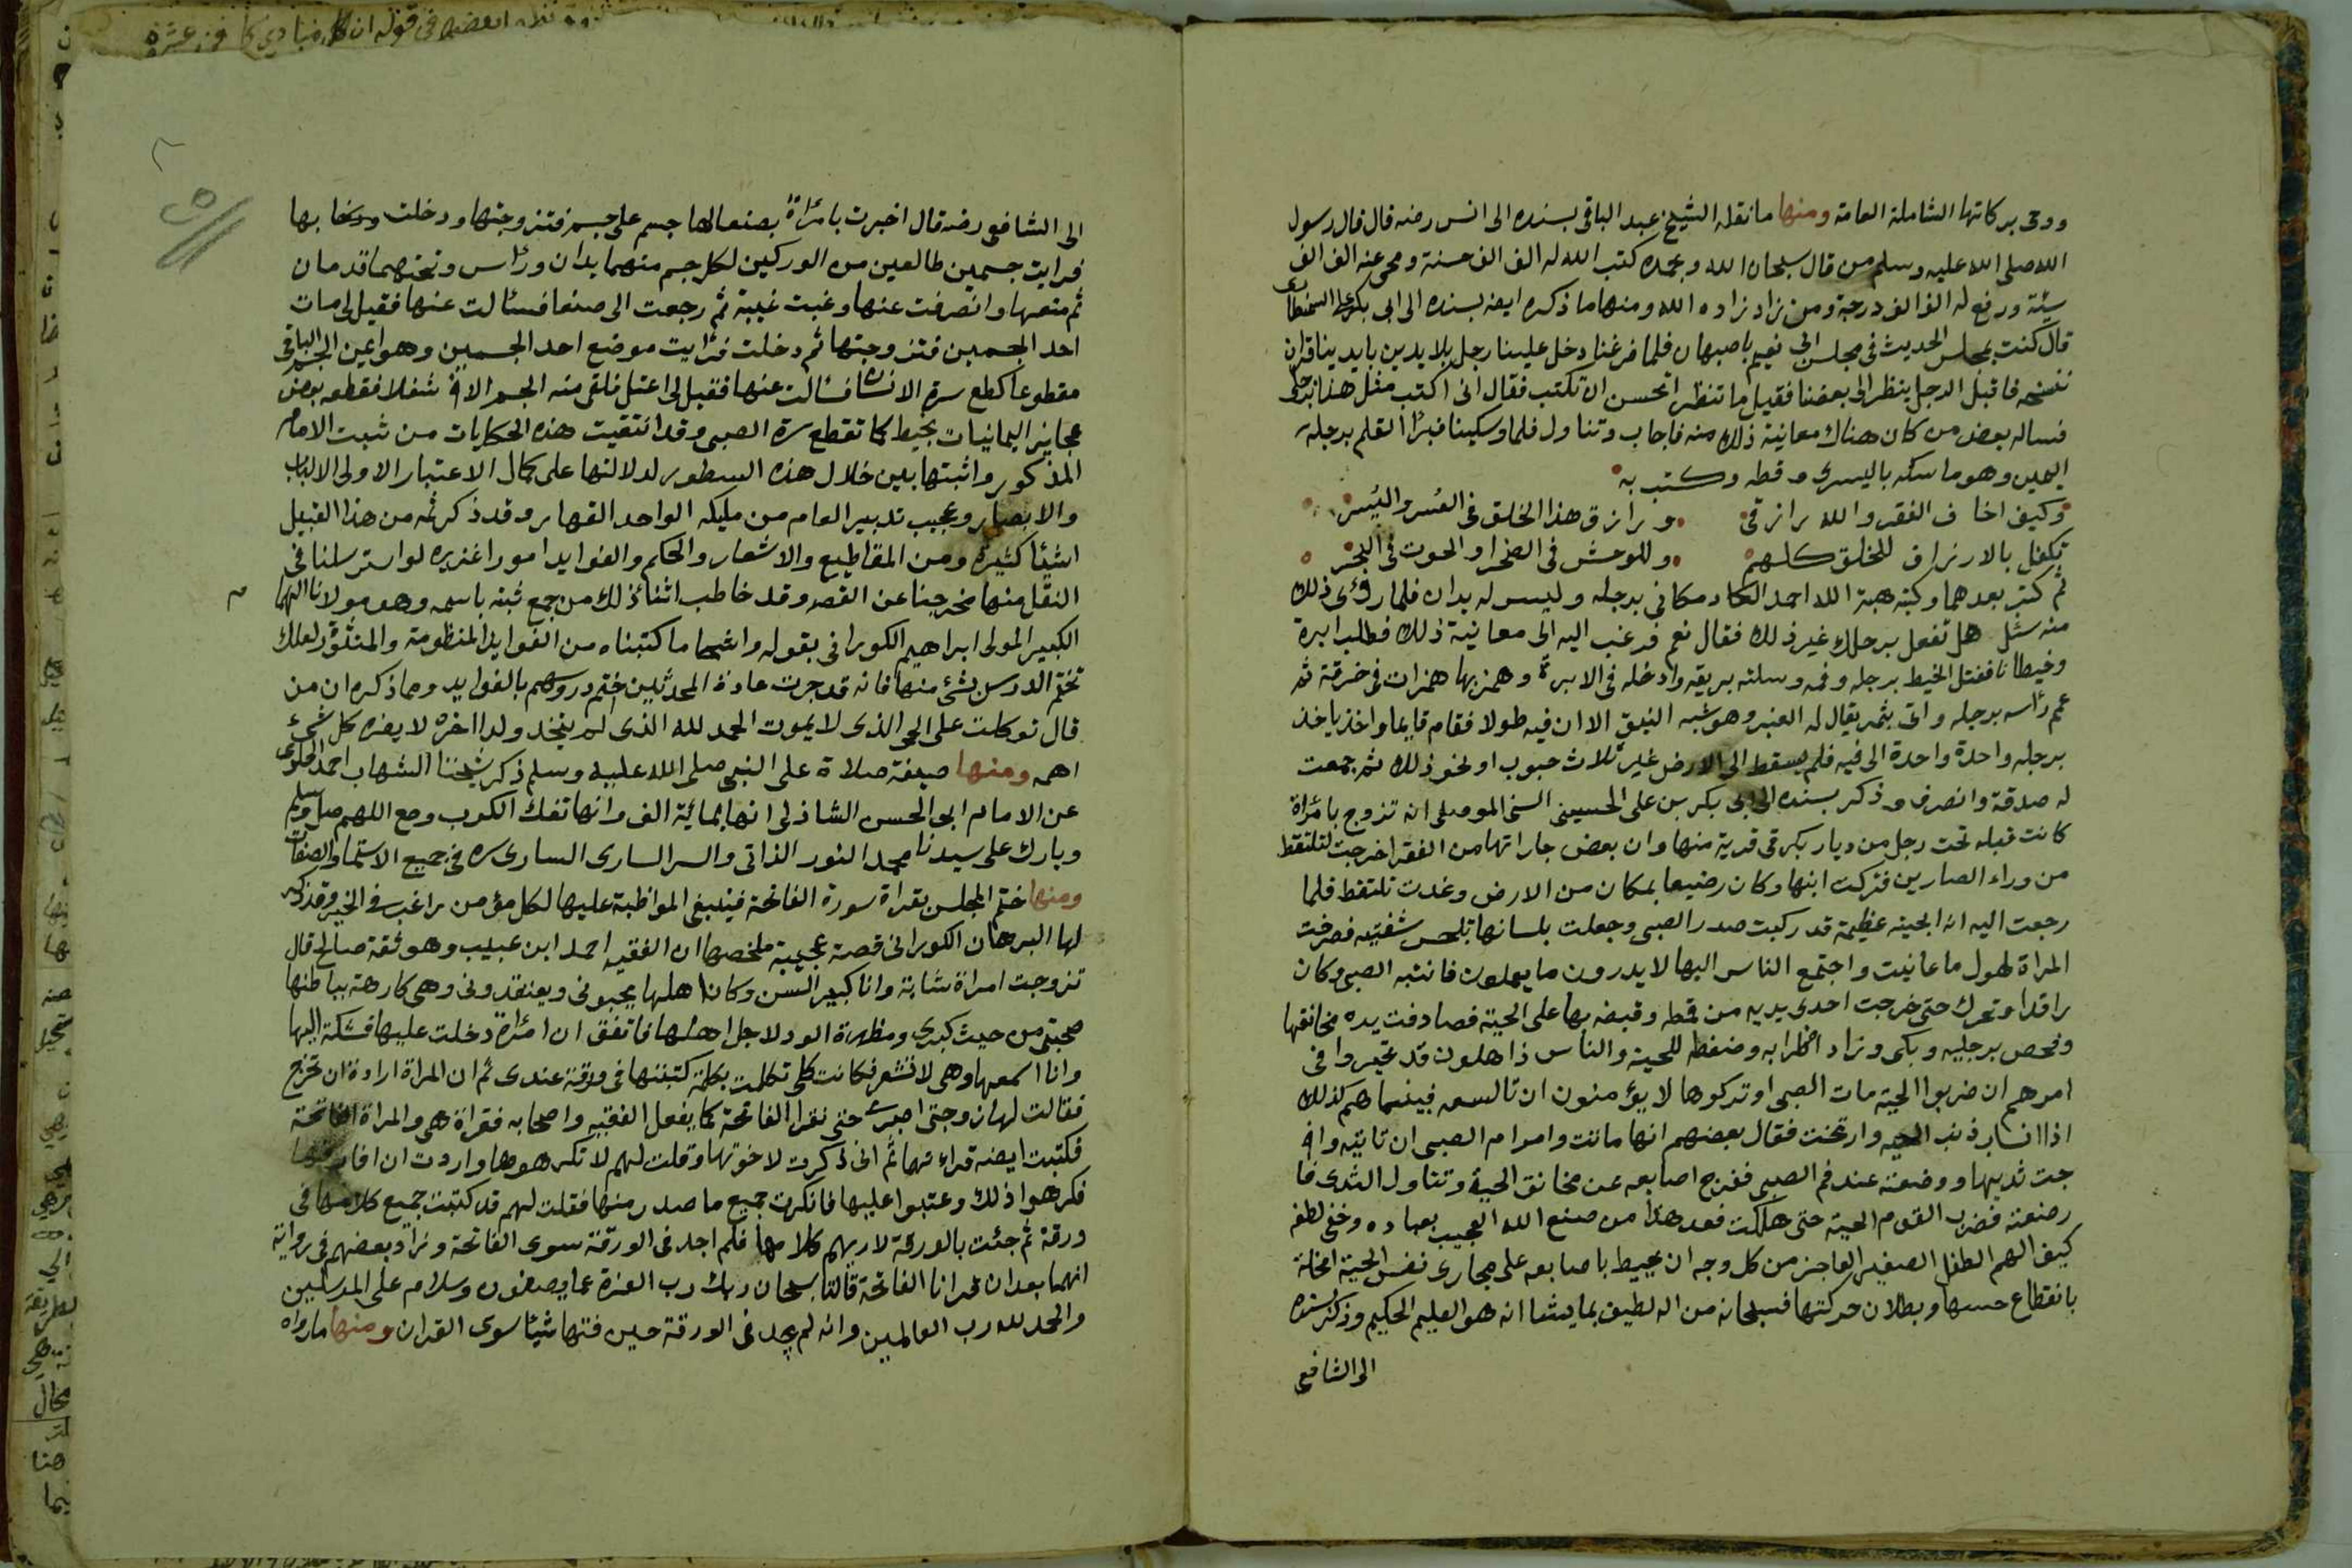 ووحى بركاتها الشاملة العامة ومنها ما نقله الشيخ عبد الباقى بسنده الى انس رضه قال قال رسول
الله صلى الله عليه وسلم من قال سبحان الله وبحمده كتب الله له الف الف حسنة ومحى عنه الف الف
سيئة ورفع له الف الف درجة ومن زاد زاده الله ومنها ما ذكره ايضه بسنده الى ابى بكر
قال كنت بمجلس الحديث فى مجلس ابى نعيم باصبهان فلما فرغنا دخل علينا رجل بلا يدين بايدينا قران
ننسخه فاقبل الرجل ينظر الى بعضنا فقيل ما تنظر اتحسن ان تكتب فقال انى اكتب مثل هذا برجلى
فساله بعض من كان هناك معاينة ذلك منه فاجاب وتناول قلما وسكينا فبرا القلم برجله
اليمين وهو ماسكه باليسرى وقطه وكتب به
وكيف اخاف الفقر والله رازقى ورازق هذا الخلق فى العسر واليسر
تكفل بالارزاق للخلق كلهم وللوحش فى الصخرا والحوت فى البحر
ثم كتب بعدهما وكتبه هبة الله احمد مكانى برجله وليس له يدان فلما رؤى ذلك
منه سئل هل تفعل برجلك غير ذلك فقال نعم فرغب اليه الى معاينة ذلك فطلب ابرة
وخيطانا ففتل الخيط برجله وفمه وسلته بريقه وادخله فى الابرة وهمز بها همزات فى خرقة ثم
عمم رأسه برجله واتى بثمر يقال له العنبر وهو شبه النبق الا ان فيه طولا فقام قايما واخذ ياخذ
برجله واحدة واحدة الى فيه فلم يسقط الى الارض غير ثلاث حبوب او نحو ذلك ثم جمعت
له صدقة وانصرف وذكر بسنده الى ابى بكر بن على الحسينى السنى الموصلى انه تزوج بامرأة
كانت قبله تحت رجل من ديار بكر فى قرية منها وان بعض جاراتها من الفقرا خرجت لتلتقط
من وراء الصارين فتركت ابنها وكان رضيعا بمكان من الارض وغدت تلتقط فلما
رجعت اليه اذا بحية عظيمة قد ركبت صدر الصبى وجعلت بلسانها تلحس شفتيه فصرخت
المراة لهول ما عاينت واجتمع الناس اليها لا يدرون ما يعملون فانتبه الصبى وكان
راقدا وتحرك حتى خرجت احدى يديه من قمطه وقبض بها على الحية فصادفت يده مخانقها
وفحص برجليه وبكى وزاد اضطرابه وضغطه للحية والناس ذاهلون قد تحيروا فى
امرهم ان ضربوا الحية مات الصبى او تركوها لا يؤمنون ان تالسعه فبينما هم كذلك
اذا انساب ذنب الحيه وارتخت فقال بعضهم انها ماتت وامر ام الصبى ان تاتيه واخ
جت ثديها ووضعته عند فم الصبى ففرج اصابعه عن مخانق الحية وتناول الثدى فا
رضعته فضرب القوم الحية حتى هلكت فعد هذا من صنع الله العجيب بعباده وخفى لطفه
كيف الهم الطفل الصغير العاجز من كل وجه ان يحيط باصابعه على مجارى نفس الحية
بانقطاع حسها وبطلان حركتها فسبحانه من اله لطيف بما يشا انه هو العليم الحكيم وذكر بسنده
الى الشافعى
الى الشافعى رضه قال اخبرت بامرأة بصنعا لها جسم على جسم فتزوجتها ودخلت بها
فرايت جسمين طالعين من الوركين لكل جسم منهما يدان ورأس وتحتهما قدمان
ثم متعها وانصرفت عنها وغبت غيبة ثم رجعت الى صنعا فسئالت عنها فقيل لى مات
احد الجسمين فتزوجتها ثم دخلت فرايت موضع احد الجسمين وهو اعين الجسم الباقى
مقطوعا كطع سرة الانسان فسئالت عنها فقيل لى اعتل فلقى منه الجسم الاخ شغلا فقطعه بعض
عجايز اليمانيات بخيط كما تقطع سرة الصبى وقد انتقيت هذه الحكايات من ثبت الامام
المذكور واثبتها بين خلال هذه السطور لدلالتها على كمال الاعتبار لاولى الالباب
والابصار وعجيب تدبير العام من مليكه الواحد القهار وقد ذكر ثمه من هذا القبيل
اشيئا كثيرة ومن المقاطيع والاشعار والحكم والفوايد امورا غزيره لو استرسلنا فى
النقل منها خرجنا عن القصد وقد خاطب اثنا ذلك من جمع ثبته باسمه وهو مولانا
الكبير المولى ابراهيم الكورانى بقوله وانما كتبناه من الفوايد المنظومة والمنثورة لعلك
تختم الدرس بشئ منها فانه قد جرت عادة المحدثين ختم دروسهم بالفوايد ومما ذكره ان من
قال توكلت على الحى الذى لا يموت الحمد لله الذى لم يتخذ ولدا اخره لا يضره كل شئ
اهمه ومنها صيغة صلاة على النبى صلى الله عليه وسلم ذكر شيخنا الشهاب احمد
عن الامام ابى الحسن الشاذلى انها بمائة الف وانها تفك الكرب وهى اللهم صل وسلم
وبارك على سيدنا محمد النور الذاتى والسر السارى السارى سره فى جميع الاسما والصفات
ومنها ختم المجلس بقراة سورة الفاتحة فينبغى المواظبة عليها لكل مؤمن راغب فى الخير وقد ذكر
لها البرهان الكورانى قصة عجيبة ملخصها ان الفقيه احمد ابن عبيب وهو ثقة صالح قال
تزوجت امراة شابة وانا كبير السن وكان اهلها يحبونى ويعتقدونى وهى كارهة بباطنها
صحبتى من حيث كبرى ومظهرة الود لاجل اهلها فاتفق ان امرأة دخلت عليها فشكت اليها
وانا اسمعها وهى لا تشعر فكانت كلما تكلمت بكلمة كتبتها فى ورقة عندى ثم ان المراة ارادة ان تخرج
فقالت لها زوجتى اصبرى حتى نقرا الفاتحة كما يفعل الفقيه واصحابه فقراة هى والمراة الفاتحة
فكتبت ايضه قراءتهما ثم انى ذكرت لاخوتها وقلت لهم لا تكرهوها واردت ان افارقها
فكرهوا ذلك وعتبوا عليها فانكرت جميع ما صدر منها فقلت لهم قد كتبت جميع كلامها فى
ورقة ثم جئت بالورقة لاريهم كلامها فلم اجد فى الورقة سوى الفاتحة وزاد بعضهم فى رواية
انهما بعد ان قرانا الفاتحة قالتا سبحان ربك رب العزة عما يصفون وسلام على المرسلين
والحمد لله رب العالمين وانه لم يجد فى الورقة حين فتحها شيئا سوى القران ومنها ما رواه